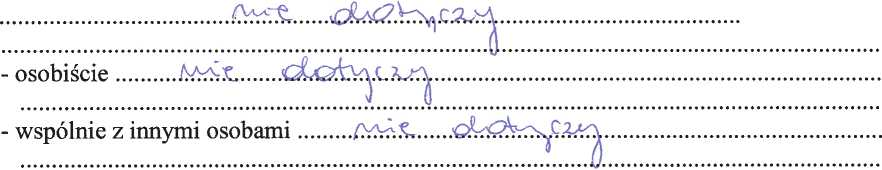 nie dotyczy
- osobiście nie dotyczy
- wspólnie z innymi osobami nie dotyczy